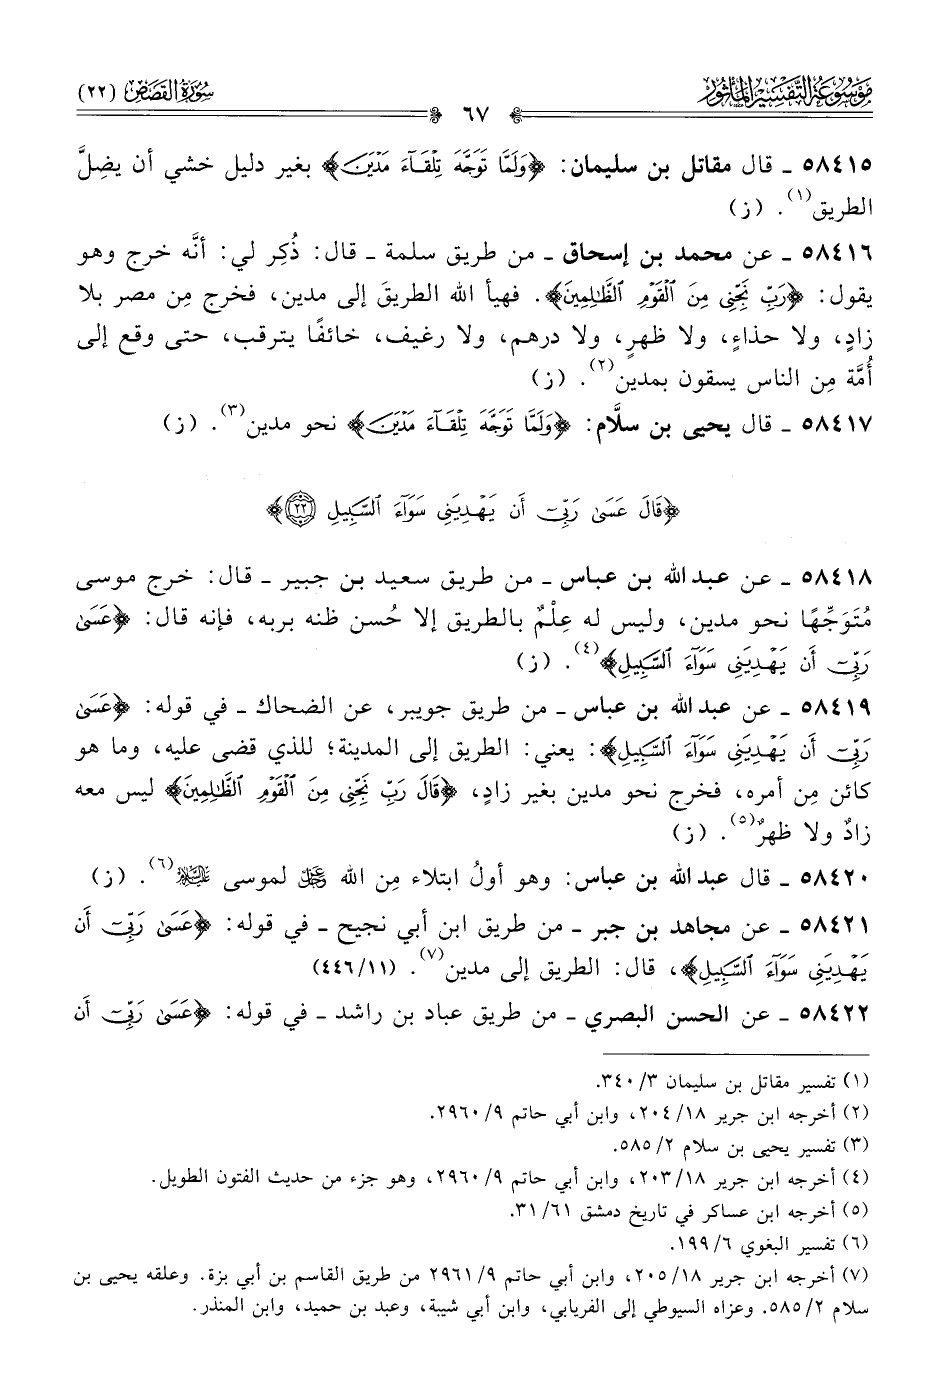 مَوْسُوعَةُ التَّفْسِيرِ المَأْثُورِ
٦٧
سُورَةُ القَصَص (٢٢)
٥٨٤١٥ ـ قال مقاتل بن سليمان: ﴿وَلَمَّا تَوَجَّهَ تِلْقَآءَ مَدْيَنَ﴾ بغير دليل خشي أن يضِلَّ
الطريق(١). (ز)
٥٨٤١٦ ـ عن محمد بن إسحاق ـ من طريق سلمة ـ قال: ذُكِر لي: أنَّه خرج وهو
يقول: ﴿رَبِّ نَجِّنِي مِنَ ٱلْقَوْمِ ٱلظَّـٰلِمِينَ﴾. فهيأ الله الطريقَ إلى مدين، فخرج مِن مصر بلا
زادٍ، ولا حذاءٍ، ولا ظهرٍ، ولا درهم، ولا رغيف، خائفًا يترقب، حتى وقع إلى
أُمَّة مِن الناس يسقون بمدين(٢). (ز)
٥٨٤١٧ ـ قال يحيى بن سلَّام: ﴿وَلَمَّا تَوَجَّهَ تِلْقَآءَ مَدْيَنَ﴾ نحو مدين(٣). (ز)
﴿قَالَ عَسَىٰ رَبِّيٓ أَن يَهْدِيَنِي سَوَآءَ ٱلسَّبِيلِ ٢٢﴾
٥٨٤١٨ ـ عن عبد الله بن عباس ـ من طريق سعيد بن جبير ـ قال: خرج موسى
مُتَوَجِّهًا نحو مدين، وليس له عِلْمٌ بالطريق إلا حُسن ظنه بربه، فإنه قال: ﴿عَسَىٰ
رَبِّيٓ أَن يَهْدِيَنِي سَوَآءَ ٱلسَّبِيلِ﴾(٤). (ز)
٥٨٤١٩ ـ عن عبد الله بن عباس ـ من طريق جويبر، عن الضحاك ـ في قوله: ﴿عَسَىٰ
رَبِّيٓ أَن يَهْدِيَنِي سَوَآءَ ٱلسَّبِيلِ﴾: يعني: الطريق إلى المدينة؛ للذي قضى عليه، وما هو
كائن مِن أمره، فخرج نحو مدين بغير زادٍ، ﴿قَالَ رَبِّ نَجِّنِي مِنَ ٱلْقَوْمِ ٱلظَّـٰلِمِينَ﴾ ليس معه
زادٌ ولا ظهرٌ(٥). (ز)
٥٨٤٢٠ ـ قال عبد الله بن عباس: وهو أولُ ابتلاء مِن الله عَزَّوَجَلَّ لموسى عَلَيْهِ السَّلَامُ(٦). (ز)
٥٨٤٢١ ـ عن مجاهد بن جبر ـ من طريق ابن أبي نجيح ـ في قوله: ﴿عَسَىٰ رَبِّيٓ أَن
يَهْدِيَنِي سَوَآءَ ٱلسَّبِيلِ﴾، قال: الطريق إلى مدين(٧). (٤٤٦/١١)
٥٨٤٢٢ ـ عن الحسن البصري ـ من طريق عباد بن راشد ـ في قوله: ﴿عَسَىٰ رَبِّيٓ أَن
(١) تفسير مقاتل بن سليمان ٣/ ٣٤٠.
(٢) أخرجه ابن جرير ١٨/ ٢٠٤، وابن أبي حاتم ٩/ ٢٩٦٠.
(٣) تفسير يحيى بن سلام ٢/ ٥٨٥.
(٤) أخرجه ابن جرير ١٨/ ٢٠٣، وابن أبي حاتم ٩/ ٢٩٦٠، وهو جزء من حديث الفتون الطويل.
(٥) أخرجه ابن عساكر في تاريخ دمشق ٦١/ ٣١.
(٦) تفسير البغوي ٦/ ١٩٩.
(٧) أخرجه ابن جرير ١٨/ ٢٠٥، وابن أبي حاتم ٩/ ٢٩٦١ من طريق القاسم بن أبي بزة. وعلقه يحيى بن
سلام ٢/ ٥٨٥. وعزاه السيوطي إلى الفريابي، وابن أبي شيبة، وعبد بن حميد، وابن المنذر.